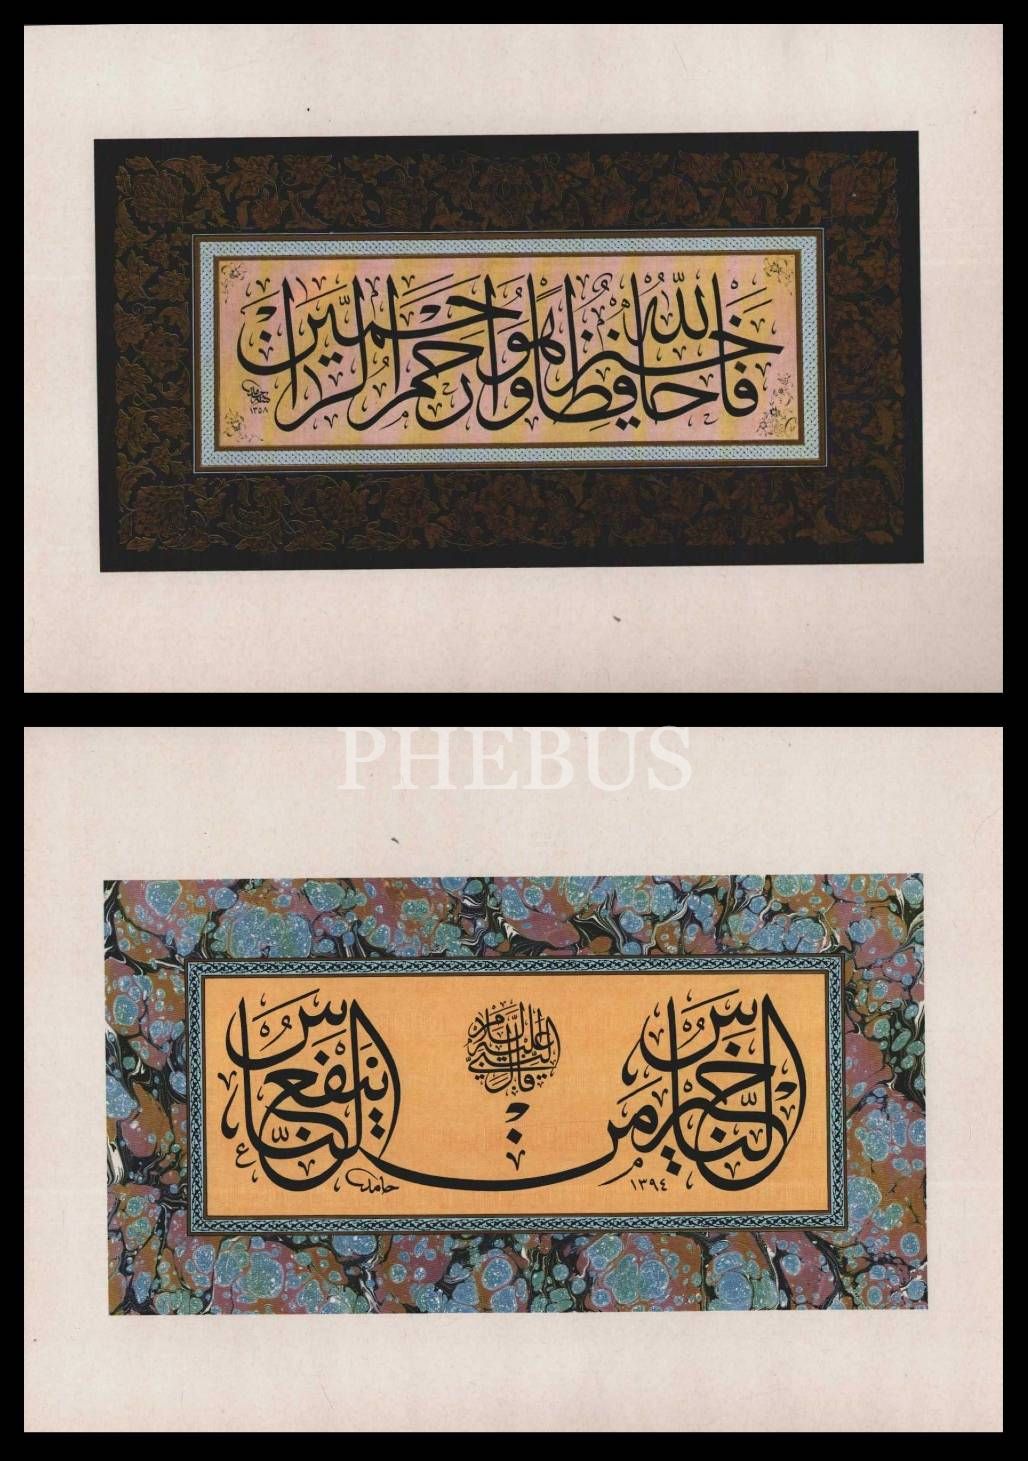 فَاللّٰهُ خَيْرٌ حَافِظًا وَهُوَ أَرْحَمُ الرَّاحِمِينَ
١٣٥٨
PHEBUS
قال النبي عليه السلام
خير الناس من ينفع الناس
حامد
١٣٩٤